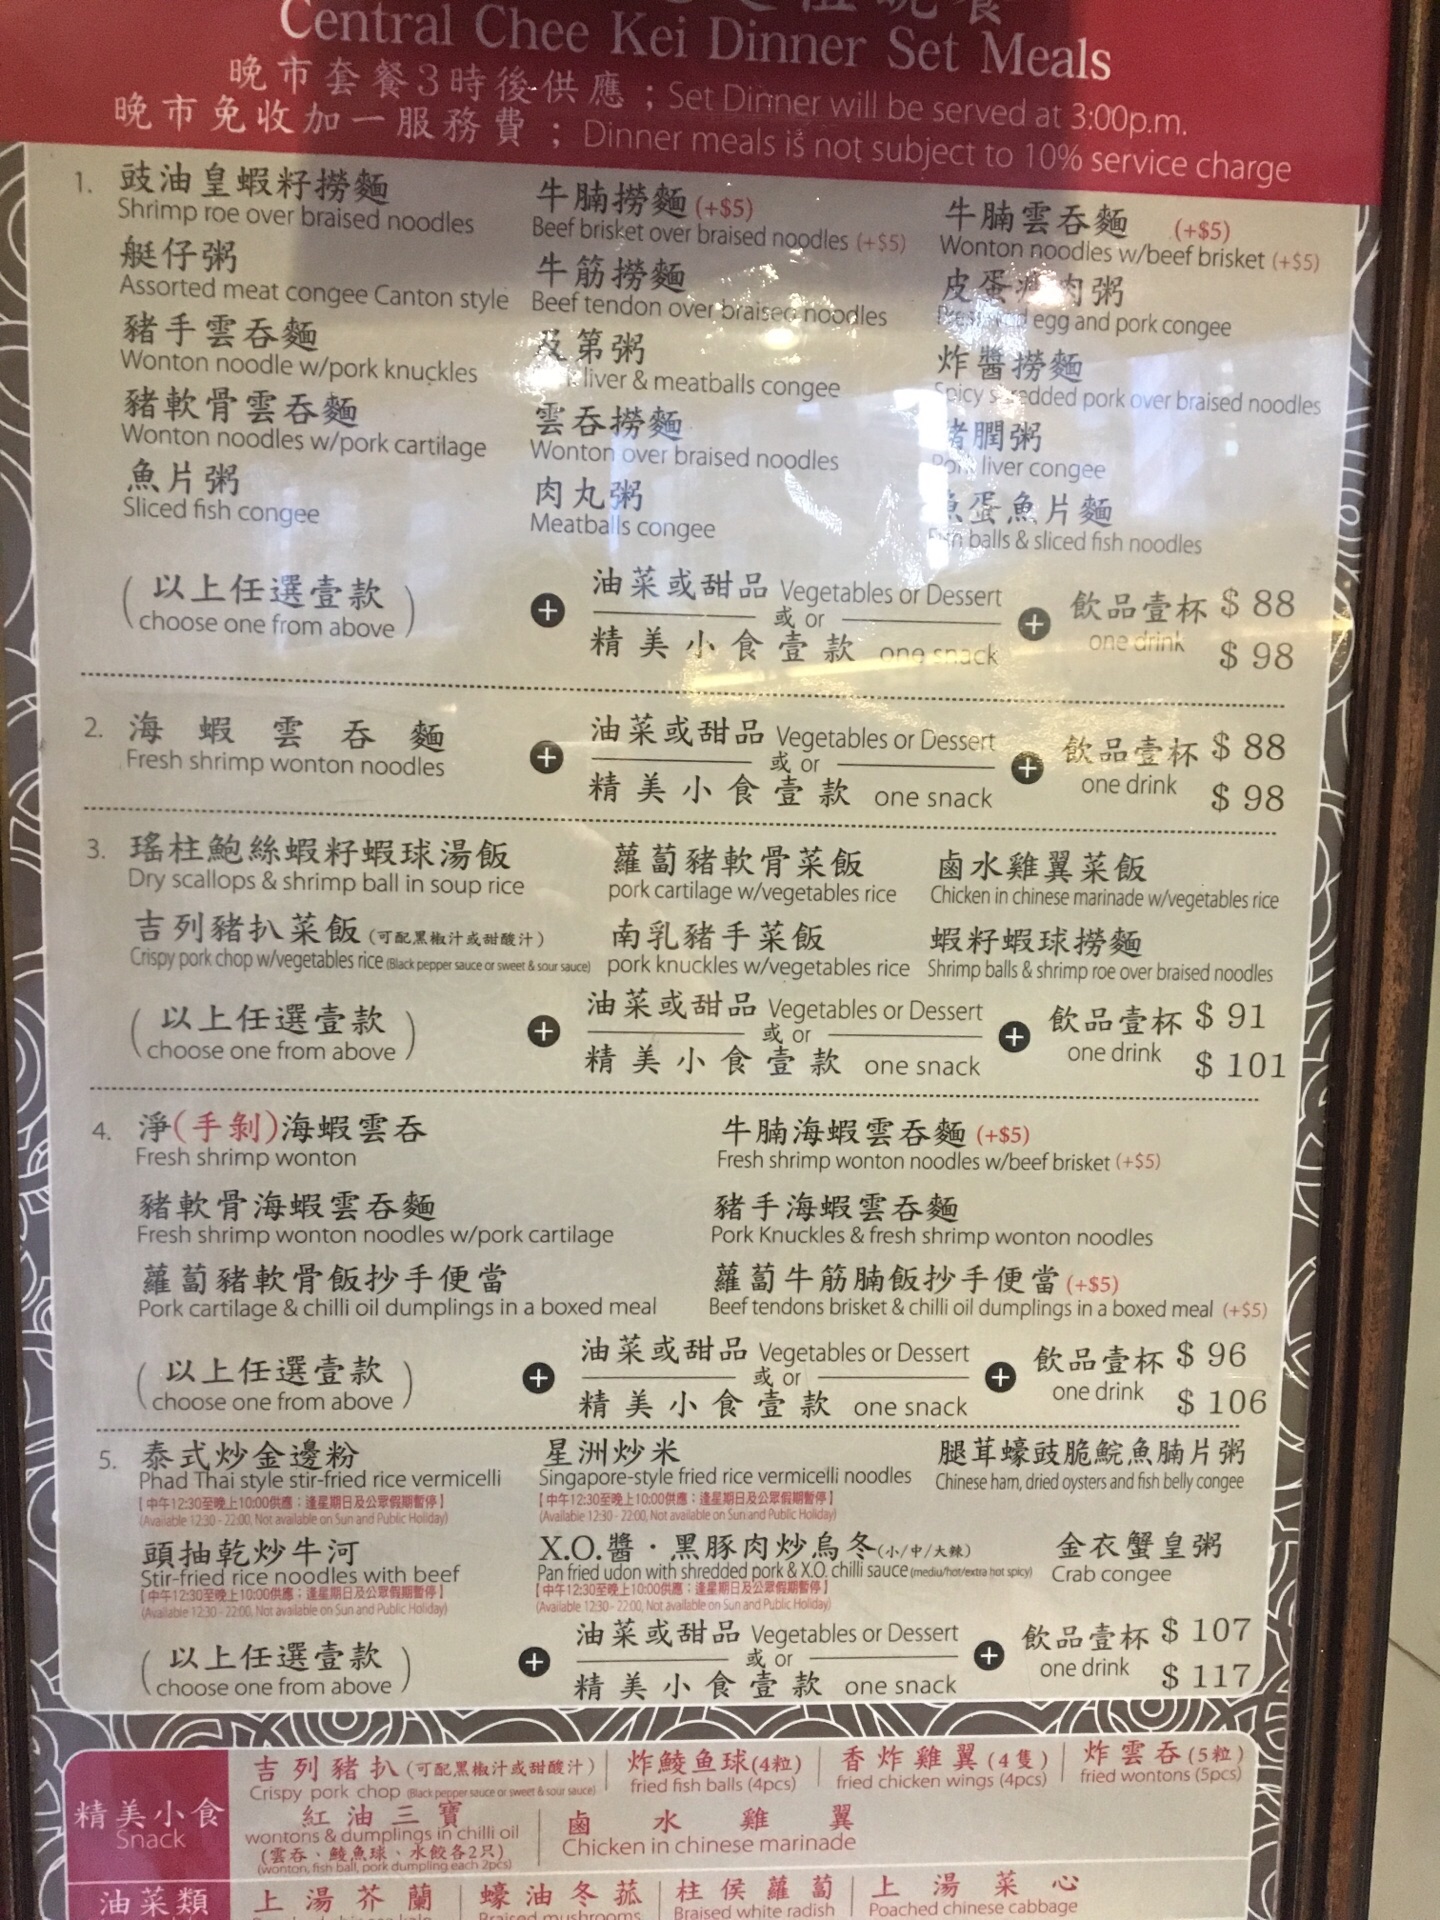 Central Chee Kei Dinner Set Meals
晚市套餐3時後供應；Set Dinner will be served at 3:00p.m.
晚市免收加一服務費；Dinner meals is not subject to 10% service charge
1. 豉油皇蝦籽撈麵 牛腩撈麵 (+$5) 牛腩雲吞麵 (+$5)
Shrimp roe over braised noodles Beef brisket over braised noodles (+$5) Wonton noodles w/beef brisket (+$5)
艇仔粥 牛筋撈麵 皮蛋瘦肉粥
Assorted meat congee Canton style Beef tendon over braised noodles egg and pork congee
豬手雲吞麵 及第粥 炸醬撈麵
Wonton noodle w/pork knuckles liver & meatballs congee Spicy shredded pork over braised noodles
豬軟骨雲吞麵 雲吞撈麵 豬膶粥
Wonton noodles w/pork cartilage Wonton over braised noodles Pork liver congee
魚片粥 肉丸粥 魚蛋魚片麵
Sliced fish congee Meatballs congee Fish balls & sliced fish noodles
(以上任選壹款) + 油菜或甜品 Vegetables or Dessert + 飲品壹杯 $ 88
(choose one from above) 或 or one drink
精美小食壹款 one snack $ 98
2. 海蝦雲吞麵 + 油菜或甜品 Vegetables or Dessert + 飲品壹杯 $ 88
Fresh shrimp wonton noodles 或 or one drink
精美小食壹款 one snack $ 98
3. 瑤柱鮑絲蝦籽蝦球湯飯 蘿蔔豬軟骨菜飯 鹵水雞翼菜飯
Dry scallops & shrimp ball in soup rice pork cartilage w/vegetables rice Chicken in chinese marinade w/vegetables rice
吉列豬扒菜飯 (可配黑椒汁或甜酸汁) 南乳豬手菜飯 蝦籽蝦球撈麵
Crispy pork chop w/vegetables rice (Black pepper sauce or sweet & sour sauce) pork knuckles w/vegetables rice Shrimp balls & shrimp roe over braised noodles
(以上任選壹款) + 油菜或甜品 Vegetables or Dessert + 飲品壹杯 $ 91
(choose one from above) 或 or one drink
精美小食壹款 one snack $ 101
4. 淨(手剝)海蝦雲吞 牛腩海蝦雲吞麵 (+$5)
Fresh shrimp wonton Fresh shrimp wonton noodles w/beef brisket (+$5)
豬軟骨海蝦雲吞麵 豬手海蝦雲吞麵
Fresh shrimp wonton noodles w/pork cartilage Pork Knuckles & fresh shrimp wonton noodles
蘿蔔豬軟骨飯抄手便當 蘿蔔牛筋腩飯抄手便當 (+$5)
Pork cartilage & chilli oil dumplings in a boxed meal Beef tendons brisket & chilli oil dumplings in a boxed meal (+$5)
(以上任選壹款) + 油菜或甜品 Vegetables or Dessert + 飲品壹杯 $ 96
(choose one from above) 或 or one drink
精美小食壹款 one snack $ 106
5. 泰式炒金邊粉 星洲炒米 腿茸蠔豉脆鯇魚腩片粥
Phad Thai style stir-fried rice vermicelli Singapore-style fried rice vermicelli noodles Chinese ham, dried oysters and fish belly congee
【中午12:30至晚上10:00供應；逢星期日及公眾假期暫停】 【中午12:30至晚上10:00供應；逢星期日及公眾假期暫停】
(Available 12:30 - 22:00, Not available on Sun and Public Holiday) (Available 12:30 - 22:00, Not available on Sun and Public Holiday)
頭抽乾炒牛河 X.O.醬・黑豚肉炒烏冬(小/中/大辣) 金衣蟹皇粥
Stir-fried rice noodles with beef Pan fried udon with shredded pork & X.O. chilli sauce (mediu/hot/extra hot spicy) Crab congee
【中午12:30至晚上10:00供應；逢星期日及公眾假期暫停】 【中午12:30至晚上10:00供應；逢星期日及公眾假期暫停】
(Available 12:30 - 22:00, Not available on Sun and Public Holiday) (Available 12:30 - 22:00, Not available on Sun and Public Holiday)
(以上任選壹款) + 油菜或甜品 Vegetables or Dessert + 飲品壹杯 $ 107
(choose one from above) 或 or one drink
精美小食壹款 one snack $ 117
精美小食
Snack
吉列豬扒 (可配黑椒汁或甜酸汁) 炸鯪魚球(4粒) 香炸雞翼(4隻) 炸雲吞(5粒)
Crispy pork chop (Black pepper sauce or sweet & sour sauce) fried fish balls (4pcs) fried chicken wings (4pcs) fried wontons (5pcs)
紅油三寶 鹵水雞翼
wontons & dumplings in chilli oil Chicken in chinese marinade
(雲吞、鯪魚球、水餃各2只)
(wonton, fish ball, pork dumpling each 2pcs)
油菜類 上湯芥蘭 蠔油冬菰 柱侯蘿蔔 上湯菜心
Braised mushrooms Braised white radish Poached chinese cabbage